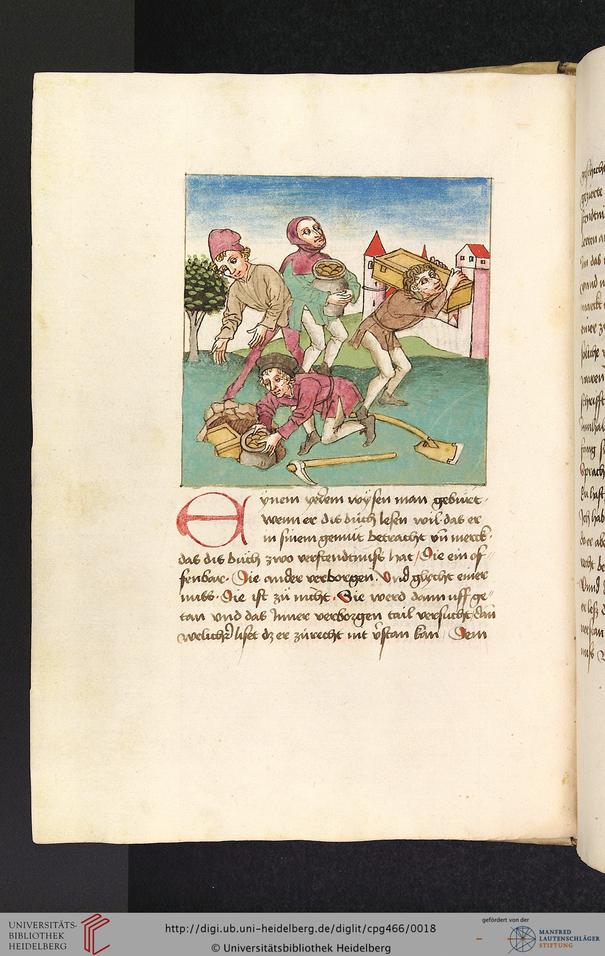 Eynem yedem wysen man gebürt
wenn er dis buch lesen wil das er
in sinem gemüt betracht vn merck
das dis buch zwo verstendtniss hat / Die ein of
fenbar. Die ander verborgen. Vnd glycht einer
nuss. Die ist zü nicht. Sie werd dann uff ge
tan vnd das Inner verborgen tail versucht dan
welicher liset dz er zürecht nit verstan kan Dem
UNIVERSITÄTS-
BIBLIOTHEK
HEIDELBERG
http://digi.ub.uni-heidelberg.de/diglit/cpg466/0018
© Universitätsbibliothek Heidelberg
gefördert von der
MANFRED
LAUTENSCHLÄGER
STIFTUNG